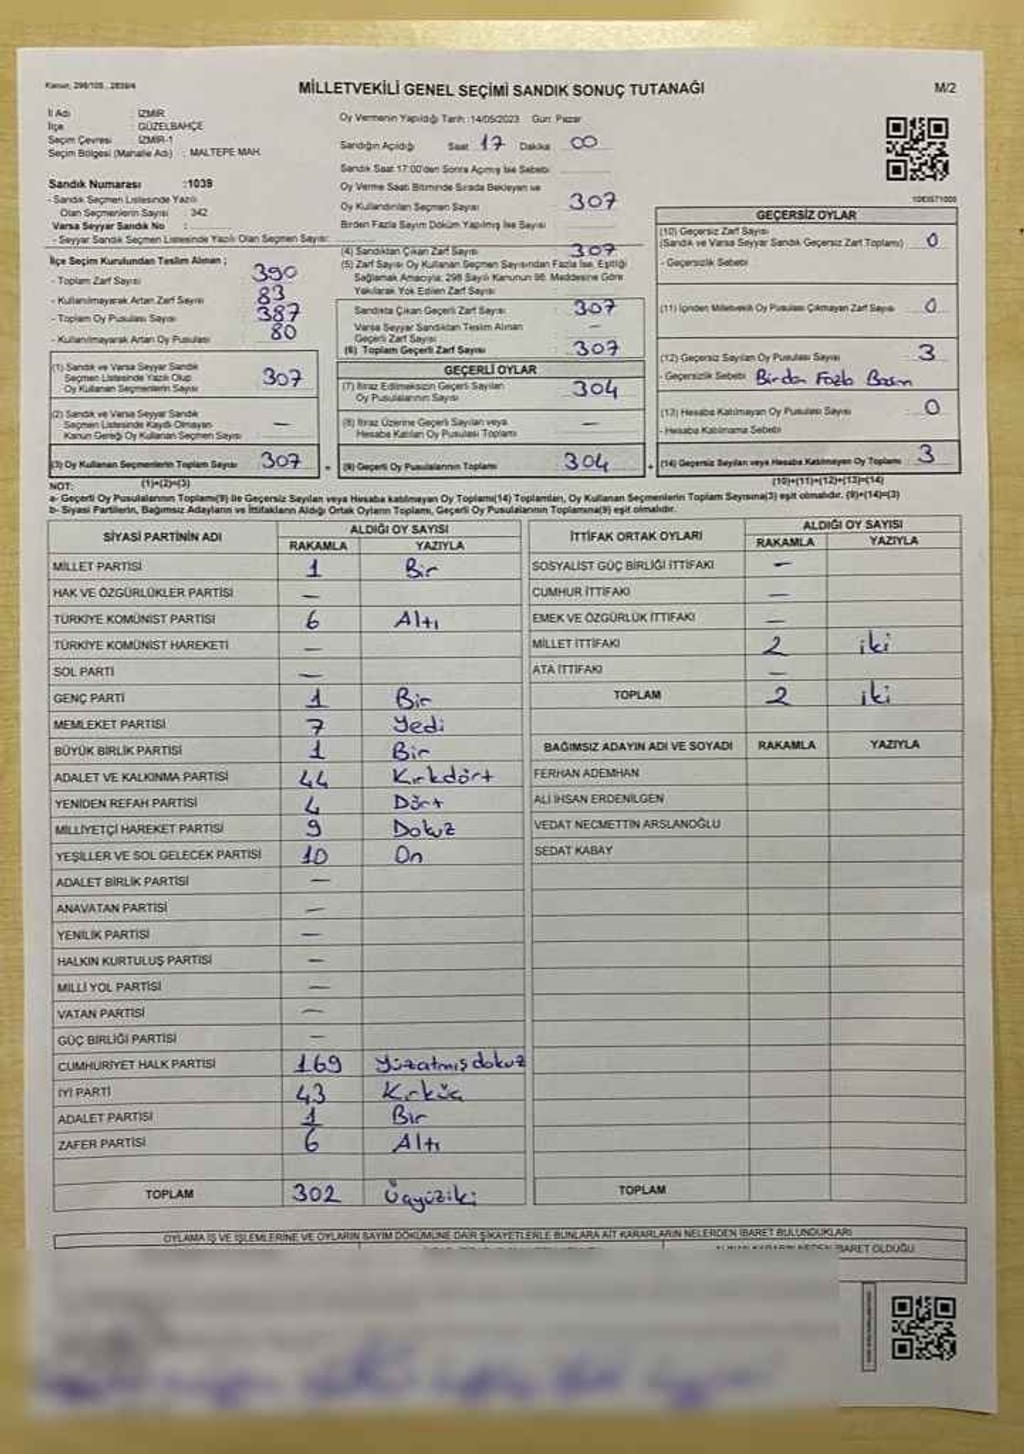 Kanun, 298/105 , 2839/4
MİLLETVEKİLİ GENEL SEÇİMİ SANDIK SONUÇ TUTANAĞI
M/2
İl Adı : İZMİR
İlçe : GÜZELBAHÇE
Seçim Çevresi : İZMİR-1
Seçim Bölgesi (Mahalle Adı) : MALTEPE MAH.
Sandık Numarası :1039
- Sandık Seçmen Listesinde Yazılı
Olan Seçmenlerin Sayısı : 342
Varsa Seyyar Sandık No :
- Seyyar Sandık Seçmen Listesinde Yazılı Olan Seçmen Sayısı:
Oy Vermenin Yapıldığı Tarih :14/05/2023 Gün: Pazar
Sandığın Açıldığı Saat 17 Dakika 00
Sandık Saat 17:00'den Sonra Açılmış İse Sebebi:
Oy Verme Saati Bitiminde Sırada Bekleyen ve
Oy Kullandırılan Seçmen Sayısı 307
Birden Fazla Sayım Döküm Yapılmış İse Sayısı
İlçe Seçim Kurulundan Teslim Alınan ;
- Toplam Zarf Sayısı : 390
- Kullanılmayarak Artan Zarf Sayısı : 83
- Toplam Oy Pusulası Sayısı : 387
- Kullanılmayarak Artan Oy Pusulası : 80
(1) Sandık ve Varsa Seyyar Sandık
Seçmen Listesinde Yazılı Olup
Oy Kullanan Seçmenlerin Sayısı : 307
(2) Sandık ve Varsa Seyyar Sandık
Seçmen Listesinde Kaydı Olmayan
Kanun Gereği Oy Kullanan Seçmen Sayısı : —
(3) Oy Kullanan Seçmenlerin Toplam Sayısı : 307 =
(4) Sandıktan Çıkan Zarf Sayısı : 307
(5) Zarf Sayısı Oy Kullanan Seçmen Sayısından Fazla İse, Eşitliği
Sağlamak Amacıyla; 298 Sayılı Kanunun 98. Maddesine Göre
Yakılarak Yok Edilen Zarf Sayısı
Sandıkta Çıkan Geçerli Zarf Sayısı : 307
Varsa Seyyar Sandıktan Teslim Alınan
Geçerli Zarf Sayısı : —
(6) Toplam Geçerli Zarf Sayısı : 307
GEÇERLİ OYLAR
(7) İtiraz Edilmeksizin Geçerli Sayılan
Oy Pusulalarının Sayısı : 304
(8) İtiraz Üzerine Geçerli Sayılan veya
Hesaba Katılan Oy Pusulası Toplamı : —
(9) Geçerli Oy Pusulalarının Toplamı : 304 +
GEÇERSİZ OYLAR
(10) Geçersiz Zarf Sayısı
(Sandık ve Varsa Seyyar Sandık Geçersiz Zarf Toplamı) : 0
- Geçersizlik Sebebi
(11) İçinden Milletvekili Oy Pusulası Çıkmayan Zarf Sayısı : 0
(12) Geçersiz Sayılan Oy Pusulası Sayısı : 3
- Geçersizlik Sebebi Birden Fazla Basım
(13) Hesaba Katılmayan Oy Pusulası Sayısı : 0
- Hesaba Katılmama Sebebi
(14) Geçersiz Sayılan veya Hesaba Katılmayan Oy Toplamı : 3
NOT: (1)+(2)=(3)
(10)+(11)+(12)+(13)=(14)
a- Geçerli Oy Pusulalarının Toplamı(9) ile Geçersiz Sayılan veya Hesaba katılmayan Oy Toplamı(14) Toplamları, Oy Kullanan Seçmenlerin Toplam Sayısına(3) eşit olmalıdır. (9)+(14)=(3)
b- Siyasi Partilerin, Bağımsız Adayların ve İttifakların Aldığı Ortak Oyların Toplamı, Geçerli Oy Pusulalarının Toplamına(9) eşit olmalıdır.
SİYASİ PARTİNİN ADI ALDIĞI OY SAYISI
RAKAMLA YAZIYLA
MİLLET PARTİSİ 1 Bir
HAK VE ÖZGÜRLÜKLER PARTİSİ —
TÜRKİYE KOMÜNİST PARTİSİ 6 Altı
TÜRKİYE KOMÜNİST HAREKETİ —
SOL PARTİ —
GENÇ PARTİ 1 Bir
MEMLEKET PARTİSİ 7 Yedi
BÜYÜK BİRLİK PARTİSİ 1 Bir
ADALET VE KALKINMA PARTİSİ 44 Kırkdört
YENİDEN REFAH PARTİSİ 4 Dört
MİLLİYETÇİ HAREKET PARTİSİ 9 Dokuz
YEŞİLLER VE SOL GELECEK PARTİSİ 10 On
ADALET BİRLİK PARTİSİ —
ANAVATAN PARTİSİ —
YENİLİK PARTİSİ —
HALKIN KURTULUŞ PARTİSİ —
MİLLİ YOL PARTİSİ —
VATAN PARTİSİ —
GÜÇ BİRLİĞİ PARTİSİ —
CUMHURİYET HALK PARTİSİ 169 Yüzatmışdokuz
İYİ PARTİ 43 Kırküç
ADALET PARTİSİ 1 Bir
ZAFER PARTİSİ 6 Altı
TOPLAM 302 Üçyüziki
İTTİFAK ORTAK OYLARI ALDIĞI OY SAYISI
RAKAMLA YAZIYLA
SOSYALİST GÜÇ BİRLİĞİ İTTİFAKI —
CUMHUR İTTİFAKI —
EMEK VE ÖZGÜRLÜK İTTİFAKI —
MİLLET İTTİFAKI 2 iki
ATA İTTİFAKI —
TOPLAM 2 iki
BAĞIMSIZ ADAYIN ADI VE SOYADI RAKAMLA YAZIYLA
FERHAN ADEMHAN
ALİ İHSAN ERDENİLGEN
VEDAT NECMETTİN ARSLANOĞLU
SEDAT KABAY
TOPLAM
OYLAMA İŞ VE İŞLEMLERİNE VE OYLARIN SAYIM DÖKÜMÜNE DAİR ŞİKAYETLERLE BUNLARA AİT KARARLARIN NELERDEN İBARET BULUNDUKLARI